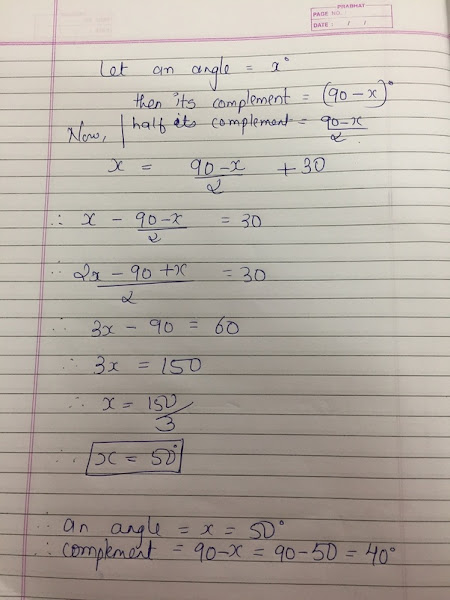 PRABHAT
PAGE NO.
DATE : / /
Let an angle = x°
then its complement = (90-x)°
Now, half its complement = 90-x/2
x = 90-x/2 + 30
∴ x - 90-x/2 = 30
∴ 2x - 90 + x/2 = 30
∴ 3x - 90 = 60
∴ 3x = 150
∴ x = 150/3
∴ x = 50°
∴ an angle = x = 50°
∴ complement = 90-x = 90-50 = 40°